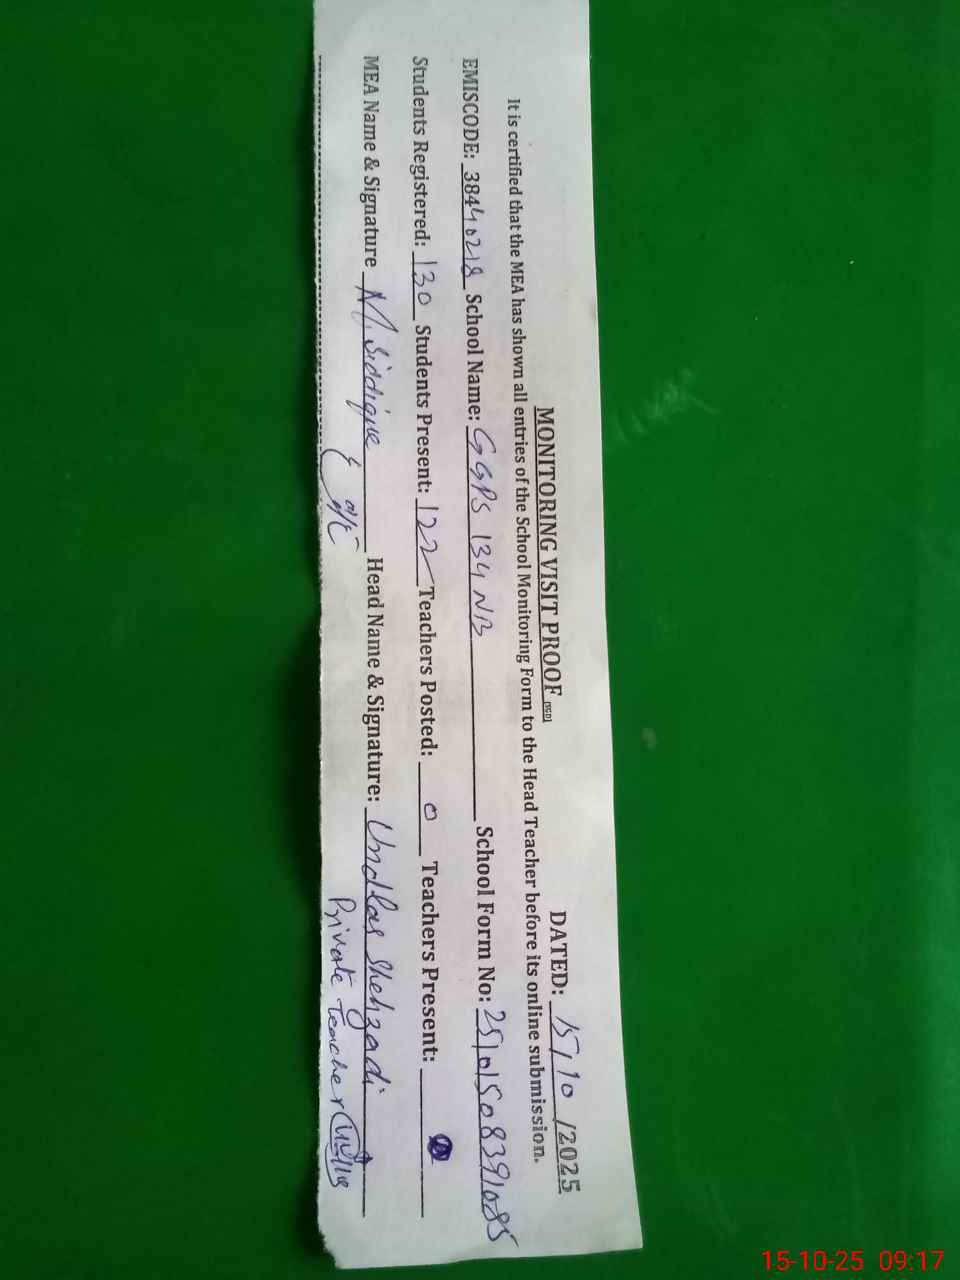 MONITORING VISIT PROOF DATED: 15/10/2025
It is certified that the MEA has shown all entries of the School Monitoring Form to the Head Teacher before its online submission.
EMISCODE: 38440218 School Name: GGPS 134 NB School Form No: 251015083911085
Students Registered: 130 Students Present: 122 Teachers Posted: 0 Teachers Present:
MEA Name & Signature M. Siddique Head Name & Signature: Shehzadi
Private Teacher
15-10-25 09:17